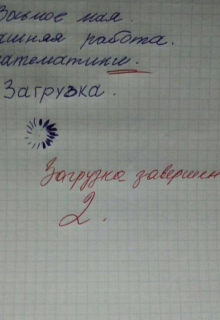 Восьмое мая
ашняя работа.
математике.
Загрузка.
Загрузка завершен
2.